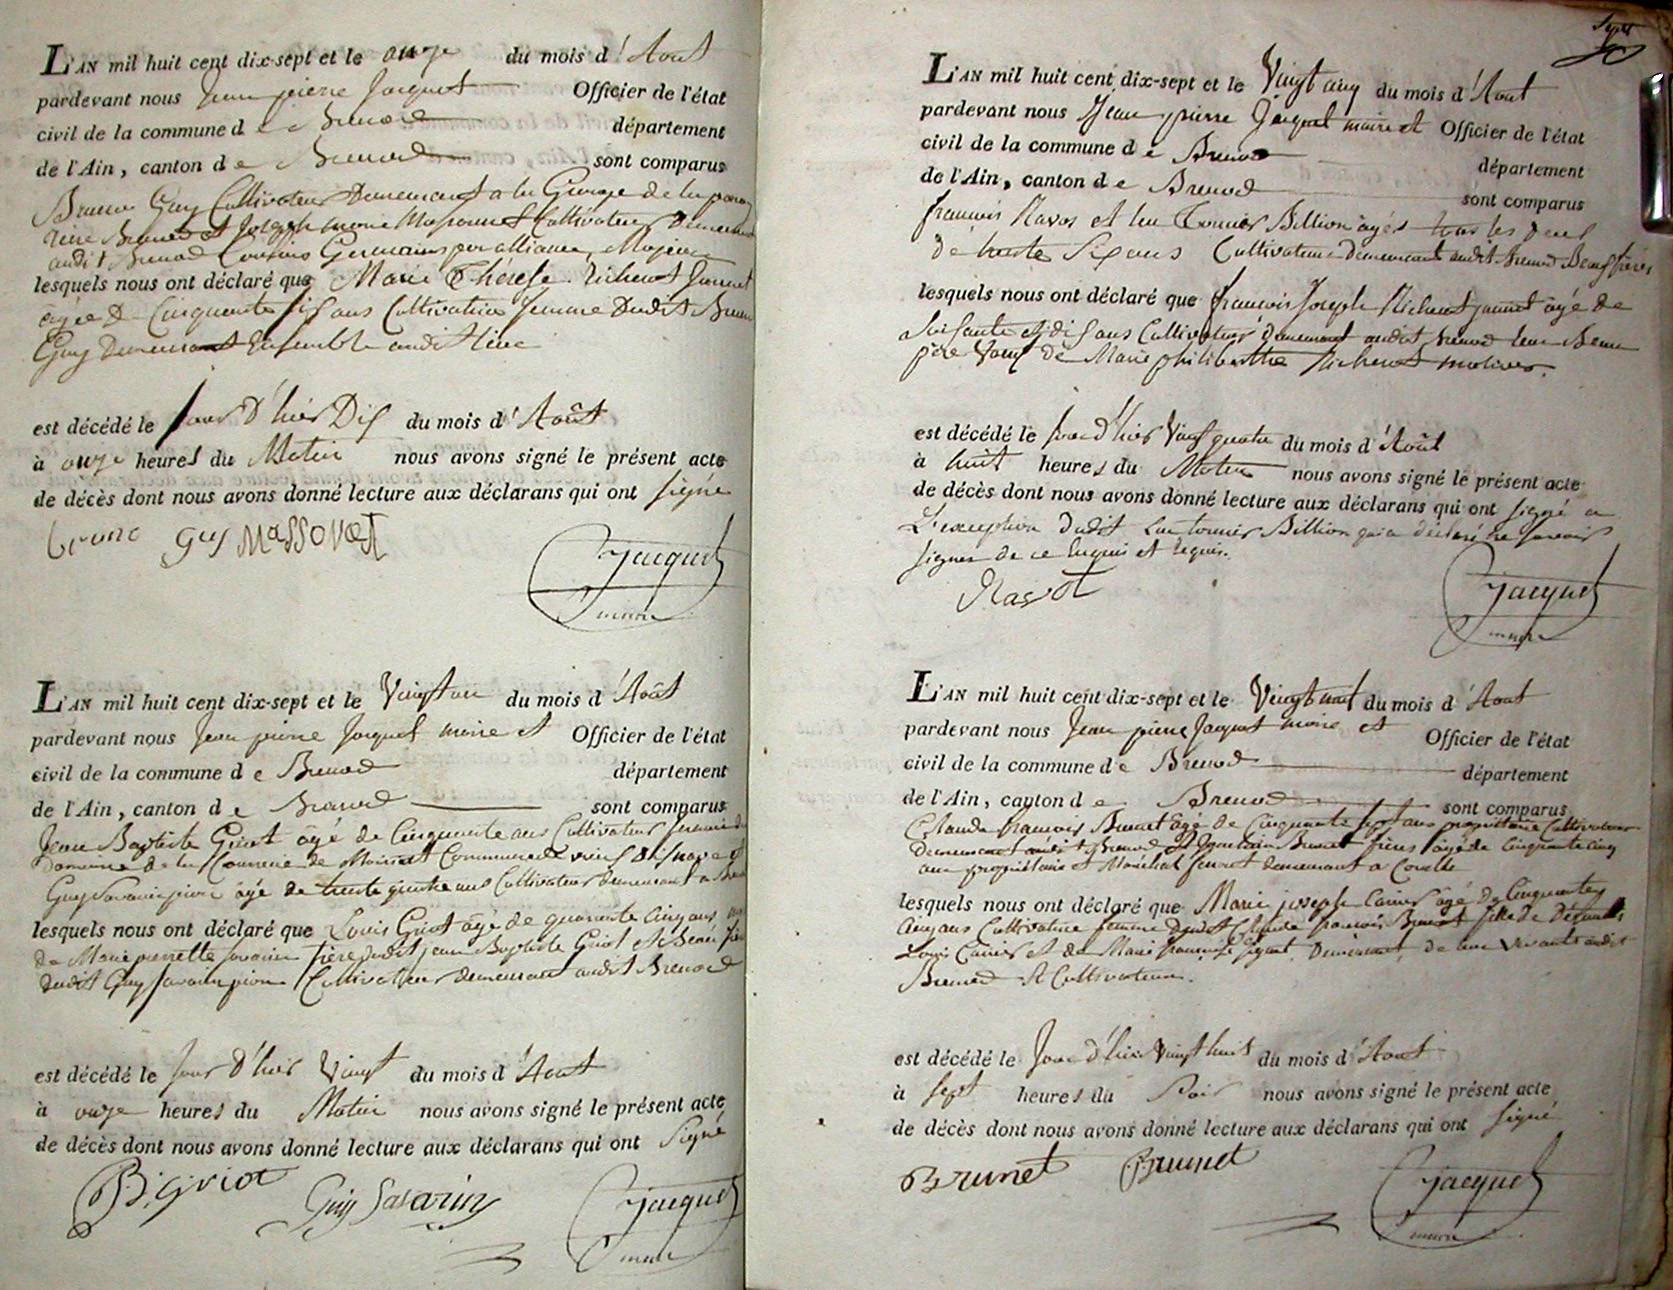 L'AN mil huit cent dix-sept et le onze du mois d'Aout
pardevant nous Jean pierre Jacquet Officier de l'état
civil de la commune de Brenod département
de l'Ain, canton de Brenod sont comparus
Guy Cultivateur Demeurant a la Grange de
Brenod et Joseph marie Massonnet Cultivateur Demeurant
audit Brenod Cousins Germains par alliance, Majeurs
lesquels nous ont déclaré que Marie Thérese Richerot Jannet
agée De Cinquante six ans Cultivatrice femme Dudit
Guy Demeurant Ensemble audit lieu
est décédé le jour D'hier Dix du mois d'Août
à onze heures du Matin nous avons signé le présent acte
de décès dont nous avons donné lecture aux déclarans qui ont signé
Guy Massonet
Jacquet
maire
L'AN mil huit cent dix-sept et le Vingt un du mois d'Août
pardevant nous Jean pierre Jacquet maire et Officier de l'état
civil de la commune de Brenod département
de l'Ain, canton de Brenod sont comparus
Jean Baptiste Griot agé de Cinquante ans Cultivateur
Domaine de la de Commune de
Guy Savarin pion âgé de trente quatre ans Cultivateur demeurant a
lesquels nous ont déclaré que Louis Griot âgé de quarante Cinq ans
de Marie pierrette savarin frère dudit jean Baptiste Griot et Beau
dudit Guy savarin pion Cultivateur demeurant audit Brenod
est décédé le jour D'hier Vingt du mois d'Aout
à onze heures du Matin nous avons signé le présent acte
de décès dont nous avons donné lecture aux déclarans qui ont Signé
B. Griot Guy Savarin Jacquet
maire
L'AN mil huit cent dix-sept et le Vingt cinq du mois d'Aout
pardevant nous Jean pierre Jacquet maire et Officier de l'état
civil de la commune de Brenod département
de l'Ain, canton de Brenod sont comparus
francois Ravot et Billion âgés tous les deux
de trente Six ans Cultivateurs Demeurant audit Brenod Beaufrères
lesquels nous ont déclaré que francois Joseph Richerot jannet âgé de
Soissante et dix ans Cultivateur Demeurant audit Brenod leur Beau
père Veuf de Marie philiberthe Richerot
est décédé le jour d'hier Vingt quatre du mois d'Août
à huit heures du Matin nous avons signé le présent acte
de décès dont nous avons donné lecture aux déclarans qui ont signé a
L'exception dudit Billion qui a déclaré ne savoir
signer de ce Enquis et requis.
Ravot
Jacquet
maire
L'AN mil huit cent dix-sept et le Vingt neuf du mois d'Aout
pardevant nous Jean pierre Jacquet maire et Officier de l'état
civil de la commune de Brenod département
de l'Ain, canton de Brenod sont comparus
Claude francois Brunet âgé de Cinquante sept ans propriétaire Cultivateur
Demeurant audit Brenod et Brunet frères âgé de Cinquante cinq
ans propriétaire et Maréchal ferrant demeurant a
lesquels nous ont déclaré que Marie joseph Carrier âgé de Cinquante
Cinq ans Cultivatrice femme Dudit Claude francois Brunet fille de Défunts
Louis Carrier et de Marie francoise Demeurant de leur Vivant audit
Brenod et Cultivateurs.
est décédé le Jour d'hier Vingt huit du mois d'Aout
à Sept heures du Soir nous avons signé le présent acte
de décès dont nous avons donné lecture aux déclarans qui ont signé
Brunet Brunet Jacquet
maire